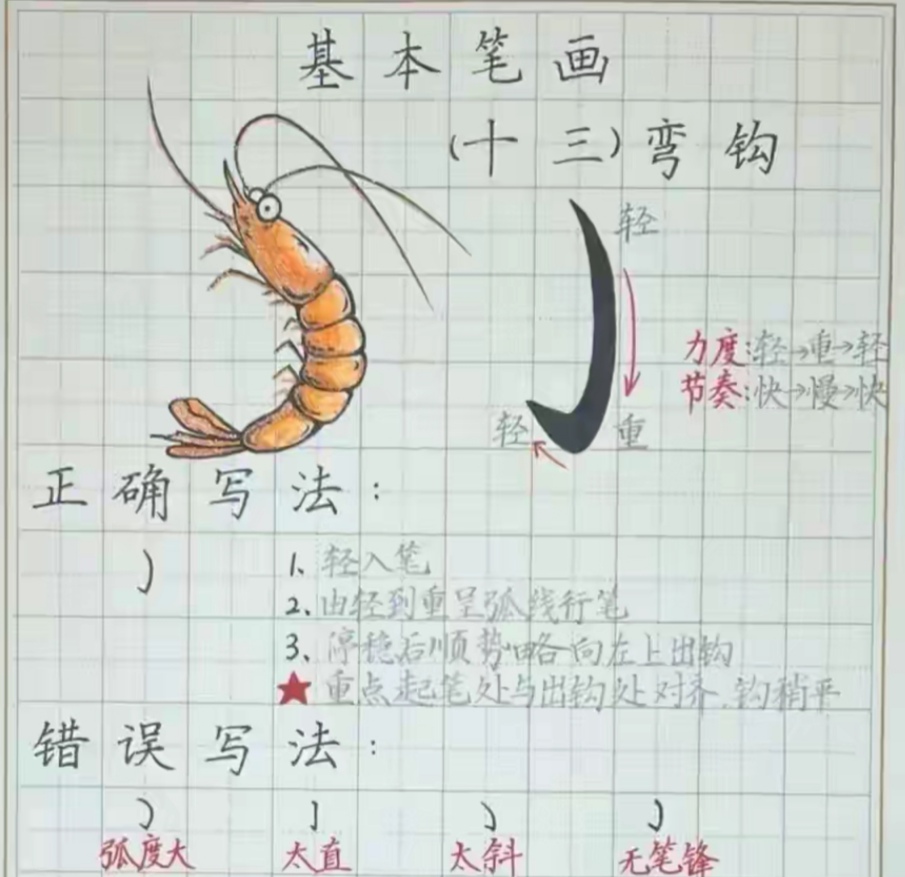 基本笔画
(十三)弯钩
轻
力度:轻→重→轻
节奏:快→慢→快
轻
重
正确写法:
1、轻入笔
2、由轻到重呈弧线行笔
3、停稳后顺势略向左上出钩
★重点起笔处与出钩处对齐,钩稍平
错误写法:
弧度大 太直 太斜 无笔锋